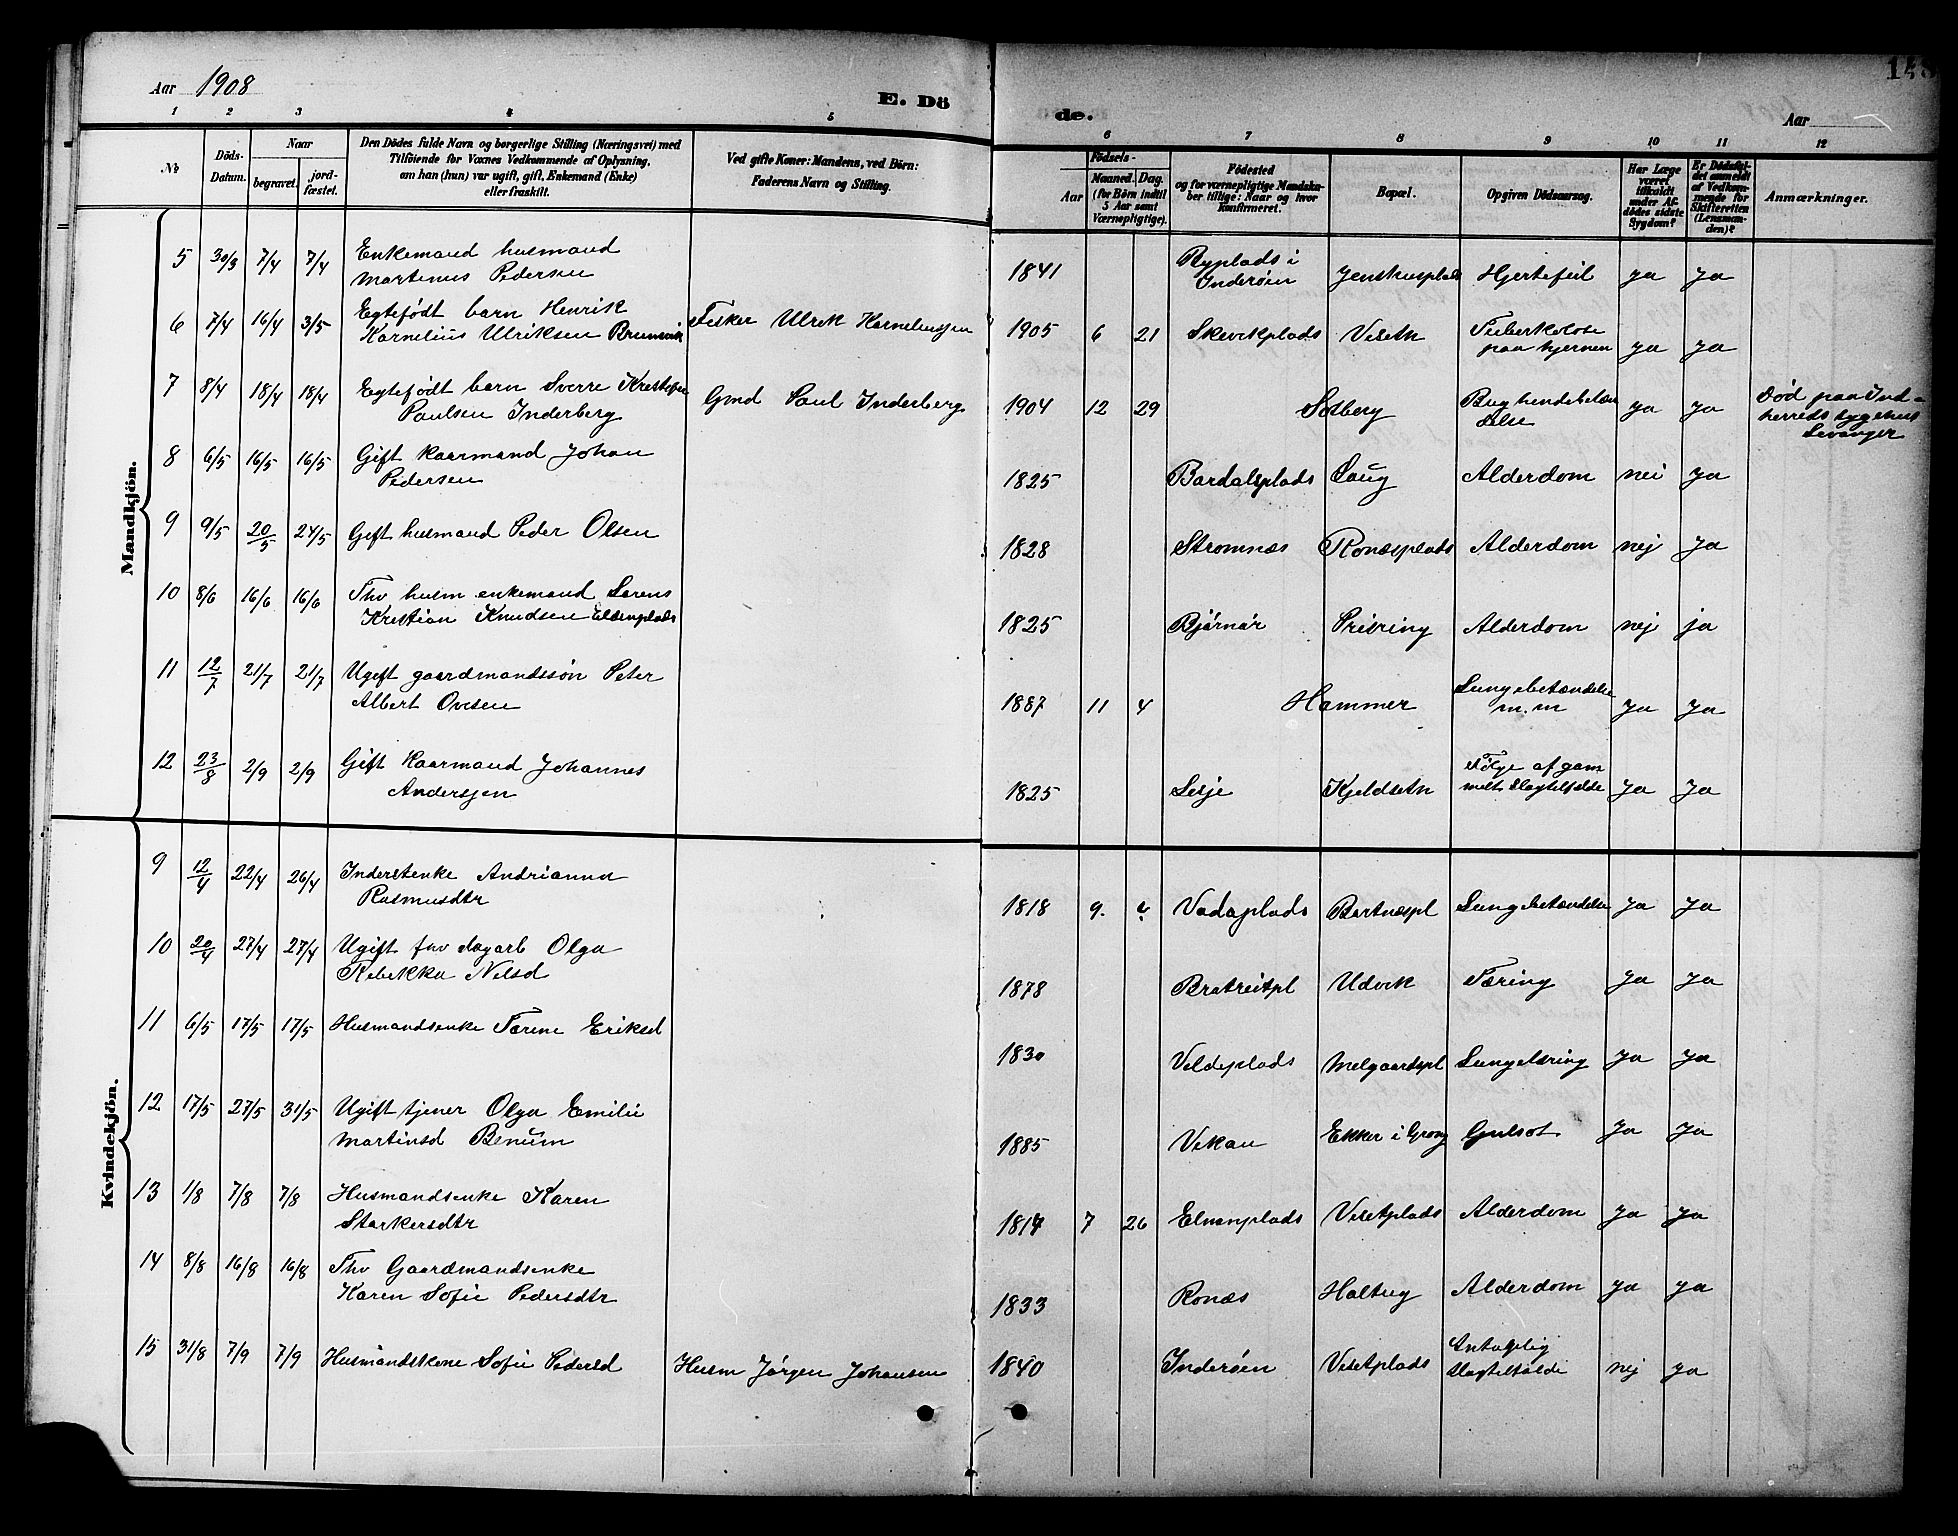 Aar 1908
E. Dö
de.
Aar
1 2 3 4 5 6 7 8 9 10 11 12
No
Döds-Datum.
Naar
begravet.
jord-fæstet.
Den Dödes fulde Navn og borgerlige Stilling (Næringsvei) med
Tilföiende for Voxnes Vedkommende af Oplysning,
om han (hun) var ugift, gift, Enkemand (Enke)
eller fraskilt.
Ved gifte Koner: Mandens, ved Börn:
Faderens Navn og Stilling.
Födsels-
Aar
Maaned. Dag.
(for Börn indtil
5 Aar samt
Værnepligtige).
Födested
og for værnepligtige Mandska-
ber tillige: Naar og hvor
konfirmeret.
Bopæl.
Opgiven Dödsaarsag.
Har Læge
været
tilkaldt
under Af-
dödes sidste
Sygdom?
Er Dödsfal-
det anmeldt
af Vedkom-
mende for
Skifteretten
(Lensman-
den)?
Anmærkninger.
Mandkjön.
5 30/3 7/4 7/4 Enkemand husmand
Martinus Pedersen
1841 Ryplads i
Inderøen Hjertefeil ja Ja
6 7/4 16/4 3/5 Egtefødt barn Henrik
Kornelius Ulriksen
Fisker Ulrik Korneliussen 1905 6 21 Skevikplads Viseth Tuberkolose
paa hjernen ja Ja
7 8/4 18/4 18/4 Egtefødt barn Sverre
Paulsen Inderberg
Gmd Paul Inderberg 1904 12 29 Solberg ja ja Død paa Ind-
herreds sygehus
Levanger
8 6/5 16/5 16/5 Gift kaarmand Johan
Pedersen
1825 Bardalsplads Alderdom nei Ja
9 9/5 20/5 24/5 Gift husmand Peder Olsen
1828 Stromnæs Ronæsplads Alderdom nej Ja
10 8/6 16/6 16/6 Thv husm enkemand Lorens
Kristian Knudsen Eldenplads
1825 Bjørnør Alderdom nej ja
11 12/7 21/7 21/7 Ugift gaardmandssøn Peter
Albert Ovesen
1887 11 4 Hammer Lungebetændelse
m.m Ja Ja
12 23/8 2/9 2/9 Gift Kaarmand Johannes
Anderssen
1825 Lesje Kjeldseth Følge af gam
melt slagtilfælde Ja Ja
Kvindekjön.
9 12/4 22/4 26/4 Inderstenke Andrianna
Rasmusdtr
1818 9. 4 Vadaplads Bartnæspl Lungebetændelse Ja Ja
10 20/4 27/4 27/4 Ugift fhv dagarb Olga
Rebekka Nilsd
1878 Bratreitpl Udvik Tæring Ja Ja
11 6/5 17/5 17/5 Husmandsenke Torine Eriksd
1830 Veldeplads Melgaardspl Lungetæring Ja Ja
12 17/5 27/5 31/5 Ugift tjener Olga Emilie
Martinsd Benum
1885 Vikan Ekker i Grong Gulsot Ja Ja
13 1/8 7/8 7/8 Husmandsenke Karen
Starkersdtr
1817 7 26 Elnanplads Visetplads Alderdom Ja Ja
14 8/8 16/8 16/8 Thv Gaardmandsenke
Karen Sofie Pedersdtr
1833 Ronæs Alderdom Ja Ja
15 31/8 7/9 7/9 Husmandskone Sofie Pedersd Husm Jørgen Johansen 1840 Inderøen Visetplads Antagelig
slagtilfælde nej Ja